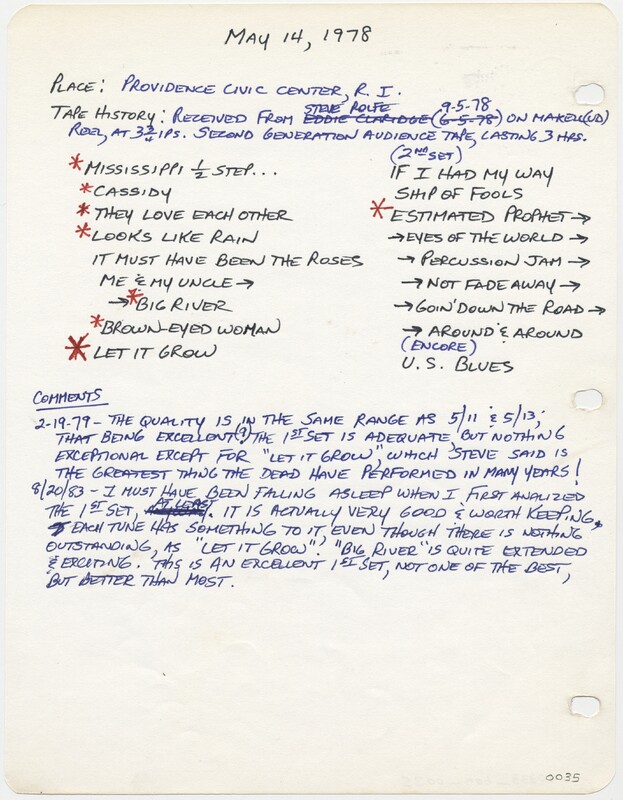 MAY 14, 1978
PLACE: PROVIDENCE CIVIC CENTER, R. I.
STEVE ROLFE 9-5-78
TAPE HISTORY: RECEIVED FROM EDDIE CLARIDGE (6-5-78) ON MAXELL (UD)
REEL, AT 3 3/4 IPS. SECOND GENERATION AUDIENCE TAPE, LASTING 3 HRS.
*MISSISSIPPI 1/2 STEP...
*CASSIDY
*THEY LOVE EACH OTHER
*LOOKS LIKE RAIN
IT MUST HAVE BEEN THE ROSES
ME & MY UNCLE →
→ *BIG RIVER
*BROWN-EYED WOMAN
*LET IT GROW
(2ND SET)
IF I HAD MY WAY
SHIP OF FOOLS
*ESTIMATED PROPHET →
→ EYES OF THE WORLD →
→ PERCUSSION JAM →
→ NOT FADE AWAY →
→ GOIN' DOWN THE ROAD →
→ AROUND & AROUND
(ENCORE)
U.S. BLUES
COMMENTS
2-19-79 - THE QUALITY IS IN THE SAME RANGE AS 5/11 & 5/13;
THAT BEING EXCELLENT(9). THE 1ST SET IS ADEQUATE, BUT NOTHING
EXCEPTIONAL EXCEPT FOR "LET IT GROW", WHICH STEVE SAID IS
THE GREATEST THING THE DEAD HAVE PERFORMED IN MANY YEARS!
8/20/83 - I MUST HAVE BEEN FALLING ASLEEP WHEN I FIRST ANALIZED
THE 1ST SET, AT LEAST. IT IS ACTUALLY VERY GOOD & WORTH KEEPING,
EACH TUNE HAS SOMETHING TO IT, EVEN THOUGH THERE IS NOTHING
OUTSTANDING, AS "LET IT GROW". "BIG RIVER" IS QUITE EXTENDED
& EXCITING. THIS IS AN EXCELLENT 1ST SET, NOT ONE OF THE BEST,
BUT BETTER THAN MOST.
0035